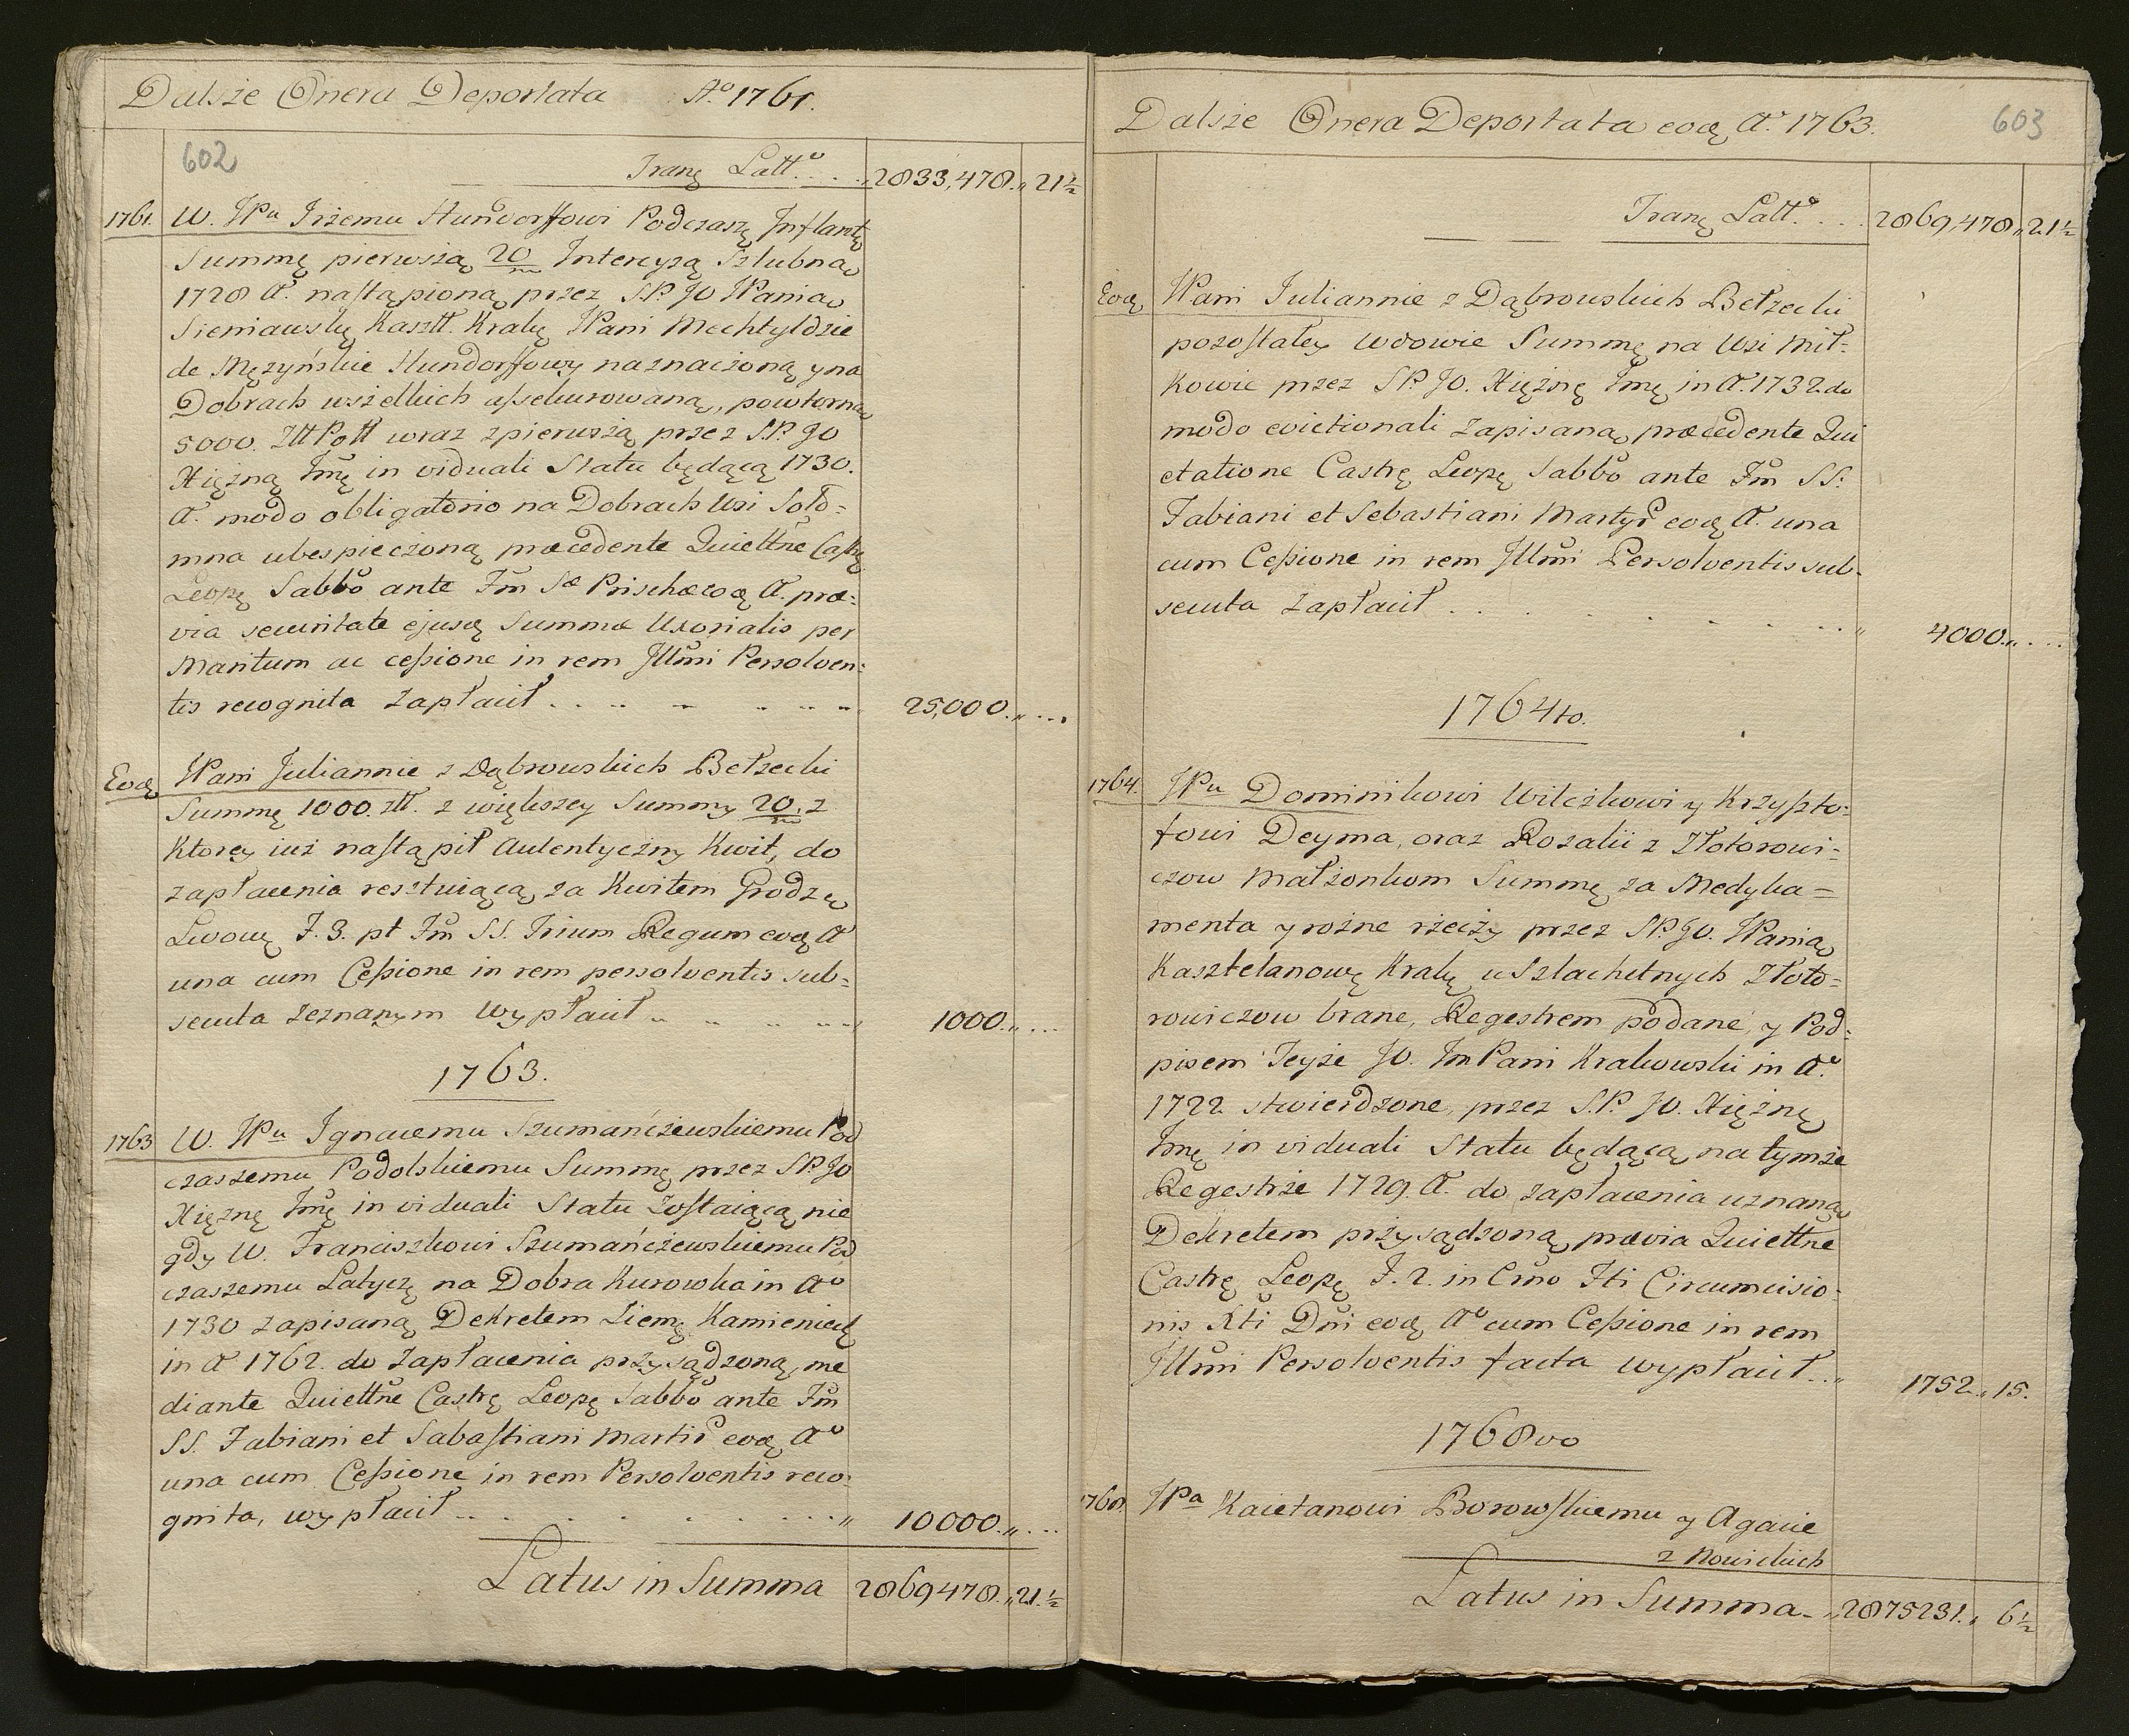 Dalsze Onera Deportata Aº 1761.
602
Transę Latt.º . . . 2833,478.,, 21½
1761. W. JPu Jrzemu Hundorffowi Podczaszę Jnflantę
Summę pierwszą 20/m Intercyzą Szlubną
1728 Aº. nastąpioną przez S.P. JO JPanią
Sieniawską Kasztt. Krakę JPani Mechtyldzie
de Męzyńskie Hundorffowy naznaczoną, y na
Dobrach wszelkich assekurowaną, powtorną
5000. Ztt Poll wraz z pierwszą przez S.P. JO
Xiężną Jmę in viduali Statu będącą 1730.
Aº. modo obligatorio na Dobrach Wsi Soło=
mna ubespieczoną præcedente Quiettne Castrę
Leopę Sabbo ante Fm Sæ Priscæ eoą Aº. præ:
via securitate ejusą Summæ Uxorialis per
Maritum ac cessione in rem Jllmi Persolven:
tis recognita zapłacił . . . . . . . 25,000.,, ...
Eoą JPani Juliannie z Dąbrowskich Bełzecki
Summę 1000. ztt. z większey Summy 20/m z
Ktorey iuż nastąpił Autentyczny Kwit, do
zapłacenia resztuiącą, za Kwitem Grodzę
Lwowę F. 3. pt Fm SS. Trium Regum eoą Aº
una cum Cessione in rem persolventis sub=
secuta zeznanym wypłacił . . . . . 1000.,, ...
1763.
1763 W. JPu Ignacemu Szumańczewskiemu Pod
czaszemu Podolskiemu Summę, przez S.P. JO
Xiężnę Jmę in viduali Statu zostaiącą, nie
gdy W. Franciszkowi Szumańczewskiemu Pod
czaszemu Latyczę na Dobra Kurowka in Aº
1730 zapisaną, Dekretem Ziemę Kamienieckę
in Aº 1762. do zapłacenia przysądzoną, me
diante Quiettne Castrę Leopę Sabbo ante Fm
SS. Fabiani et Sabastiani Martir eoą Aº
una cum Cessione in rem Persolventis reco:
gnita, wypłacił . . . . . . . . 10000.,, ...
Latus in Summa 2869478.,, 21.½
Dalsze Onera Deportata eoą Aº. 1763.
603
Transę Latt.º . . . 2869,478,, 21½
Eoą JPani Juliannie z Dąbrowskich Bełzecki
pozostałey Wdowie Summę na Wsi Mił:
kowie przez S.P. JO. Xiężnę Jmę in Aº. 1732do
modo evictionali zapisaną, præcedente Qui
etatione Castrę Leopę Sabbo ante Fm SS.
Fabiani et Sebastiani Martyr eoą Aº. una
cum Cessione in rem Jllmi Persolventis sub-
secuta zapłacił . . . . . . . 4000.,, ...
1764to.
1764. JPu Dominikowi Wilczkowi y Krzyszto:
fowi Deyma, oraz Rozalii z Złotorowi=
czow Małżonkom Summę za Medyka=
menta y rożne rżeczy przez S.P. JO. JPanią
Kasztelanowę Krakę u Szlachetnych Złoto=
rowiczow brane, Regestrem podane, y Pod:
pisem Teyże JO. Jm Pani Krakowski in Aº.
1722 stwierdzone, przez S.P. JO. Xiężnę
Jmę in viduali Statu będącą, na tymże
Regestrże 1729. Aº. do zapłacenia uznaną,
Dekretem przysądzoną, prævia Quiettne
Castrę Leopę F. 2. in Crno Fti Circumcisio:
nis Xti Dni eoą Aº cum Cessione in rem
Jllmi Persolventis facta wypłacił . . . 1752.,, 15.
1768vo
1768. JPa Kaietanowi Borowskiemu y Agacie
z Nowickich
Latus in Summa - 2875231.,, 6½